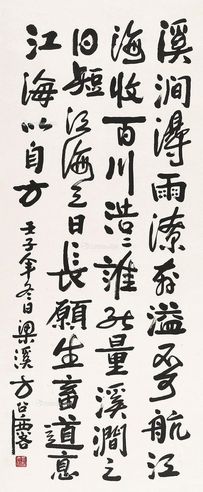 溪澗得雨潦奔溢不可航江
海收百川浩〻誰能量溪澗之
日短江海之日長願生畜道意
江海以自方 壬子年冬日梁溪方召麐